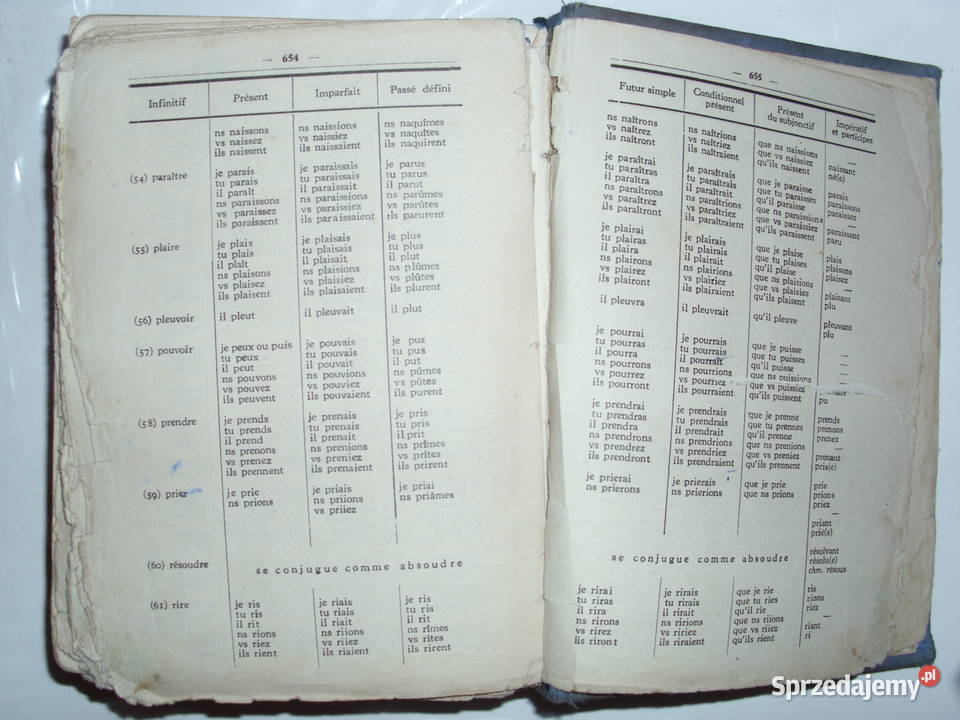 — 654 —
Infinitif Présent Imparfait Passé défini
ns naissons ns naissions ns naquîmes
vs naissez vs naissiez vs naquîtes
ils naissent ils naissaient ils naquirent
(54) paraître je parais je paraissais je parus
tu parais tu paraissais tu parus
il paraît il paraissait il parut
ns paraissons ns paraissions ns parûmes
vs paraissez vs paraissiez vs parûtes
ils paraissent ils paraissaient ils parurent
(55) plaire je plais je plaisais je plus
tu plais tu plaisais tu plus
il plaît il plaisait il plut
ns plaisons ns plaisions ns plûmes
vs plaisez vs plaisiez vs plûtes
ils plaisent ils plaisaient ils plurent
(56) pleuvoir il pleut il pleuvait il plut
(57) pouvoir je peux ou puis je pouvais je pus
tu peux tu pouvais tu pus
il peut il pouvait il put
ns pouvons ns pouvions ns pûmes
vs pouvez vs pouviez vs pûtes
ils peuvent ils pouvaient ils purent
(58) prendre je prends je prenais je pris
tu prends tu prenais tu pris
il prend il prenait il prit
ns prenons ns prenions ns prîmes
vs prenez vs preniez vs prîtes
ils prennent ils prenaient ils prirent
(59) prier je prie je priais je priai
ns prions ns priions ns priâmes
vs priiez
(60) résoudre se conjugue comme absoudre
(61) rire je ris je riais je ris
tu ris tu riais tu ris
il rit il riait il rit
ns rions ns riions ns rîmes
vs riez vs riiez vs rîtes
ils rient ils riaient ils rirent
— 655 —
Futur simple Conditionnel présent Présent du subjonctif Impératif et participes
ns naîtrons ns naîtrions que ns naissions —
vs naîtrez vs naîtriez que vs naissiez naissant
ils naîtront ils naîtraient qu'ils naissent né(e)
je paraîtrai je paraîtrais que je paraisse parais
tu paraîtras tu paraîtrais que tu paraisses paraissons
il paraîtra il paraîtrait qu'il paraisse paraissez
ns paraîtrons ns paraîtrions que ns paraissions —
vs paraîtrez vs paraîtriez que vs paraissiez paraissant
ils paraîtront ils paraîtraient qu'ils paraissent paru
je plairai je plairais que je plaise plais
tu plairas tu plairais que tu plaises plaisons
il plaira il plairait qu'il plaise plaisez
ns plairons ns plairions que ns plaisions —
vs plairez vs plairiez que vs plaisiez plaisant
ils plairont ils plairaient qu'ils plaisent plu
il pleuvra il pleuvrait qu'il pleuve pleuvant
plu
je pourrai je pourrais que je puisse —
tu pourras tu pourrais que tu puisses —
il pourra il pourrait qu'il puisse —
ns pourrons ns pourrions que ns puissions —
vs pourrez vs pourriez que vs puissiez
ils pourront ils pourraient qu'ils puissent pu
je prendrai je prendrais que je prenne prends
tu prendras tu prendrais que tu prennes prenons
il prendra il prendrait qu'il prenne prenez
ns prendrons ns prendrions que ns prenions —
vs prendrez vs prendriez que vs preniez prenant
ils prendront ils prendraient qu'ils prennent pris(e)
je prierai je prierais que je prie prie
ns prierons ns prierions que ns prions prions
priez
—
priant
prié(e)
se conjugue comme absoudre résolvant
résolu(e)
chm. résous
je rirai je rirais que je rie ris
tu riras tu rirais que tu ries rions
il rira il rirait qu'il rie riez
ns rirons ns ririons que ns riions —
vs rirez vs ririez que vs riiez riant
ils riront ils riraient qu'ils rient ri
Sprzedajemy.pl